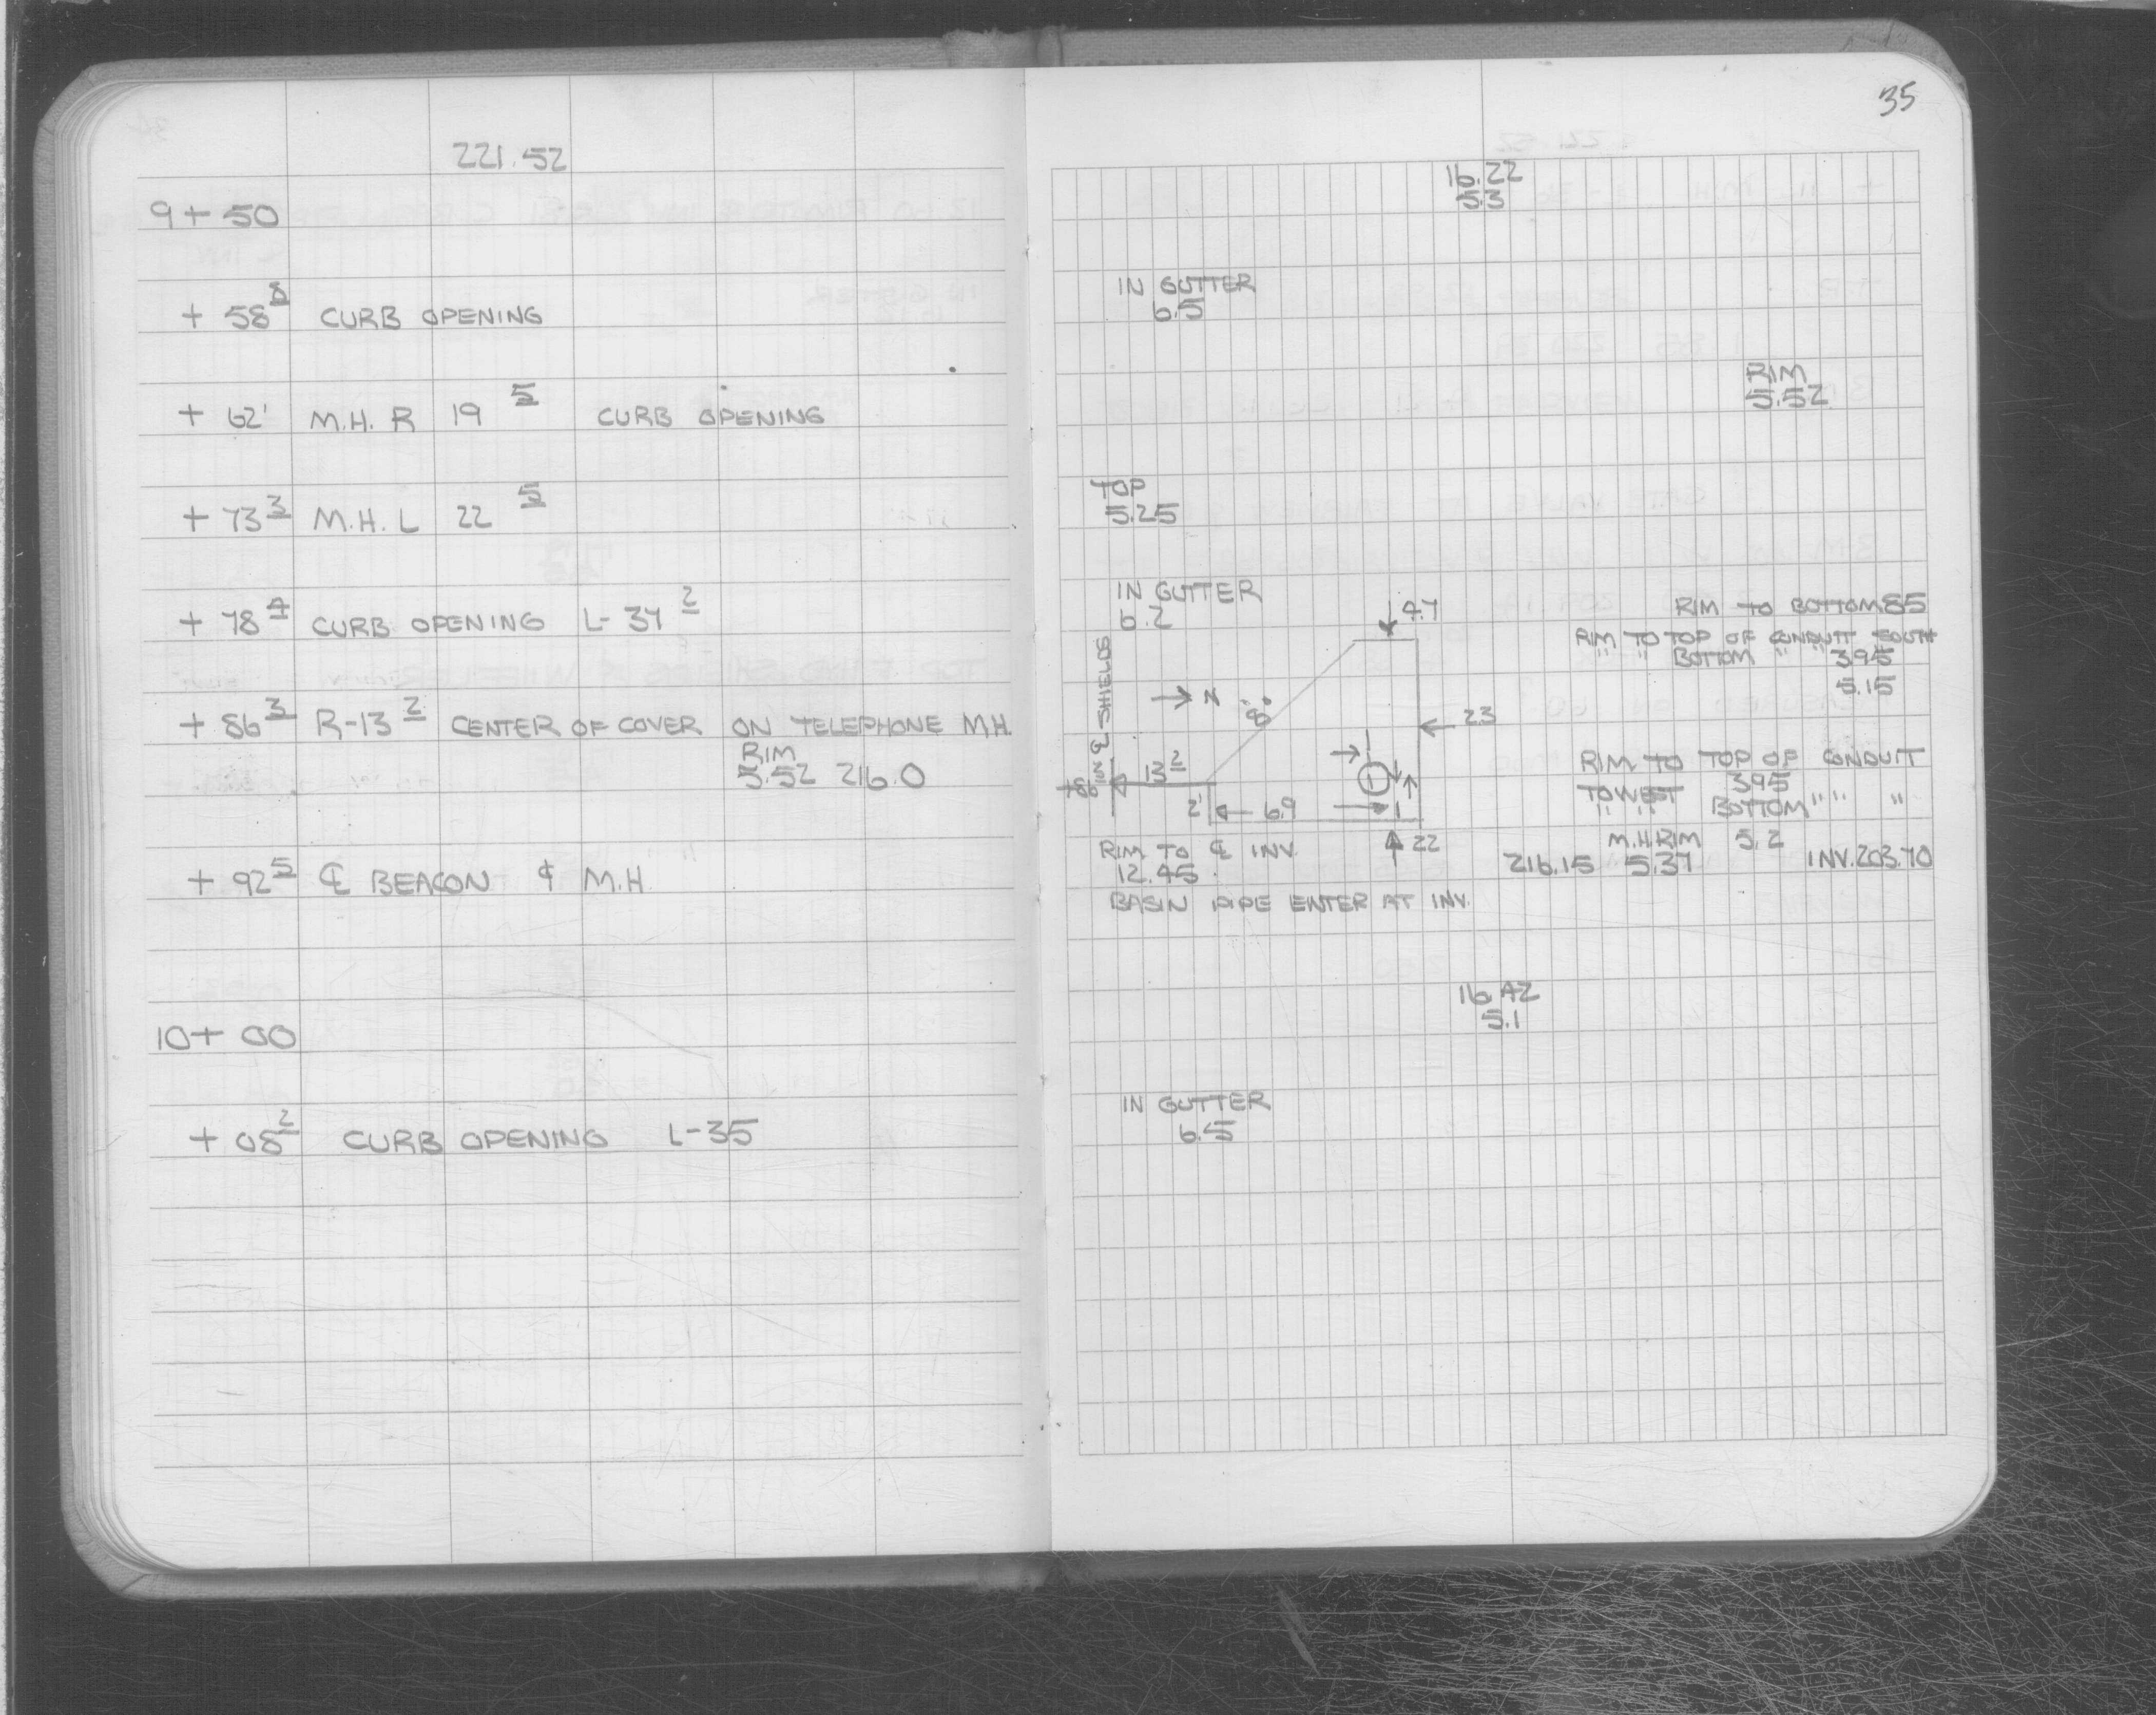 221.52
9+50
+ 58 8 CURB OPENING
+ 62' M.H. R 19 5 CURB OPENING
+ 73 3 M.H. L 22 5
+ 78 4 CURB OPENING L- 37 2
+ 86 3 R-13 2 CENTER OF COVER ON TELEPHONE M.H.
RIM
5.52 216.0
+ 92 5 ℄ BEACON ¢ M.H.
10+ 00
+ 08 2 CURB OPENING L-35
35
16.22
5.3
IN GUTTER
6.5
RIM
5.52
TOP
5.25
IN GUTTER
6.2
4.7
RIM TO BOTTOM 85
RIM TO TOP OF CONDUIT SOUTH
" " BOTTOM " " 395
5.15
ION ℄ SHIELDS
→ N
8.8
23
13 2
+86
2'
6.9
22
RIM TO TOP OF CONDUIT
TO WEST 395
" " BOTTOM " " "
M.H RIM 5.2
216.15 5.37 INV. 203.70
RIM TO ℄ INV.
12.45
BASIN PIPE ENTER AT INV.
16.42
5.1
IN GUTTER
6.5